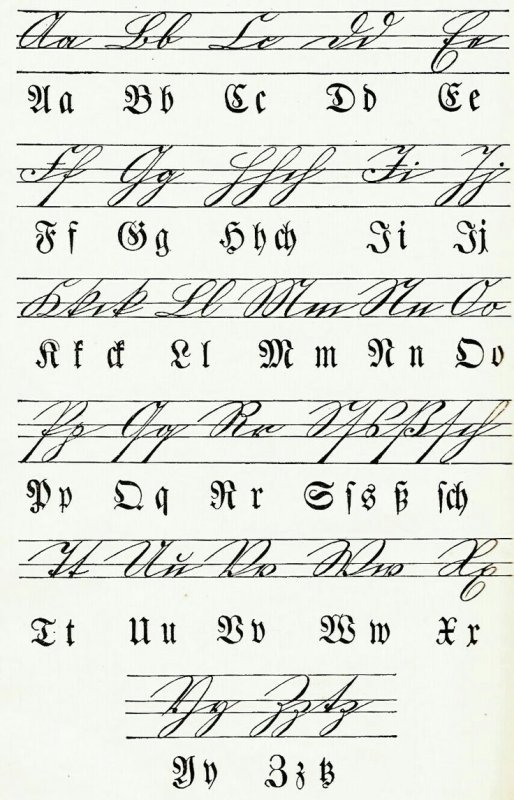 Aa Bb Cc Dd Ee
A a B b C c D d E e
Ff Gg Hhch Ii Jj
F f G g H h ch I i J j
Kkck Ll Mm Nn Oo
K k ck L l M m N n O o
Pp Qq Rr Sſsßſch
P p Q q R r S ſ s ß ſch
Tt Uu Vv Ww Xx
T t U u V v W w X x
Yy Zztz
Y y Z z tz